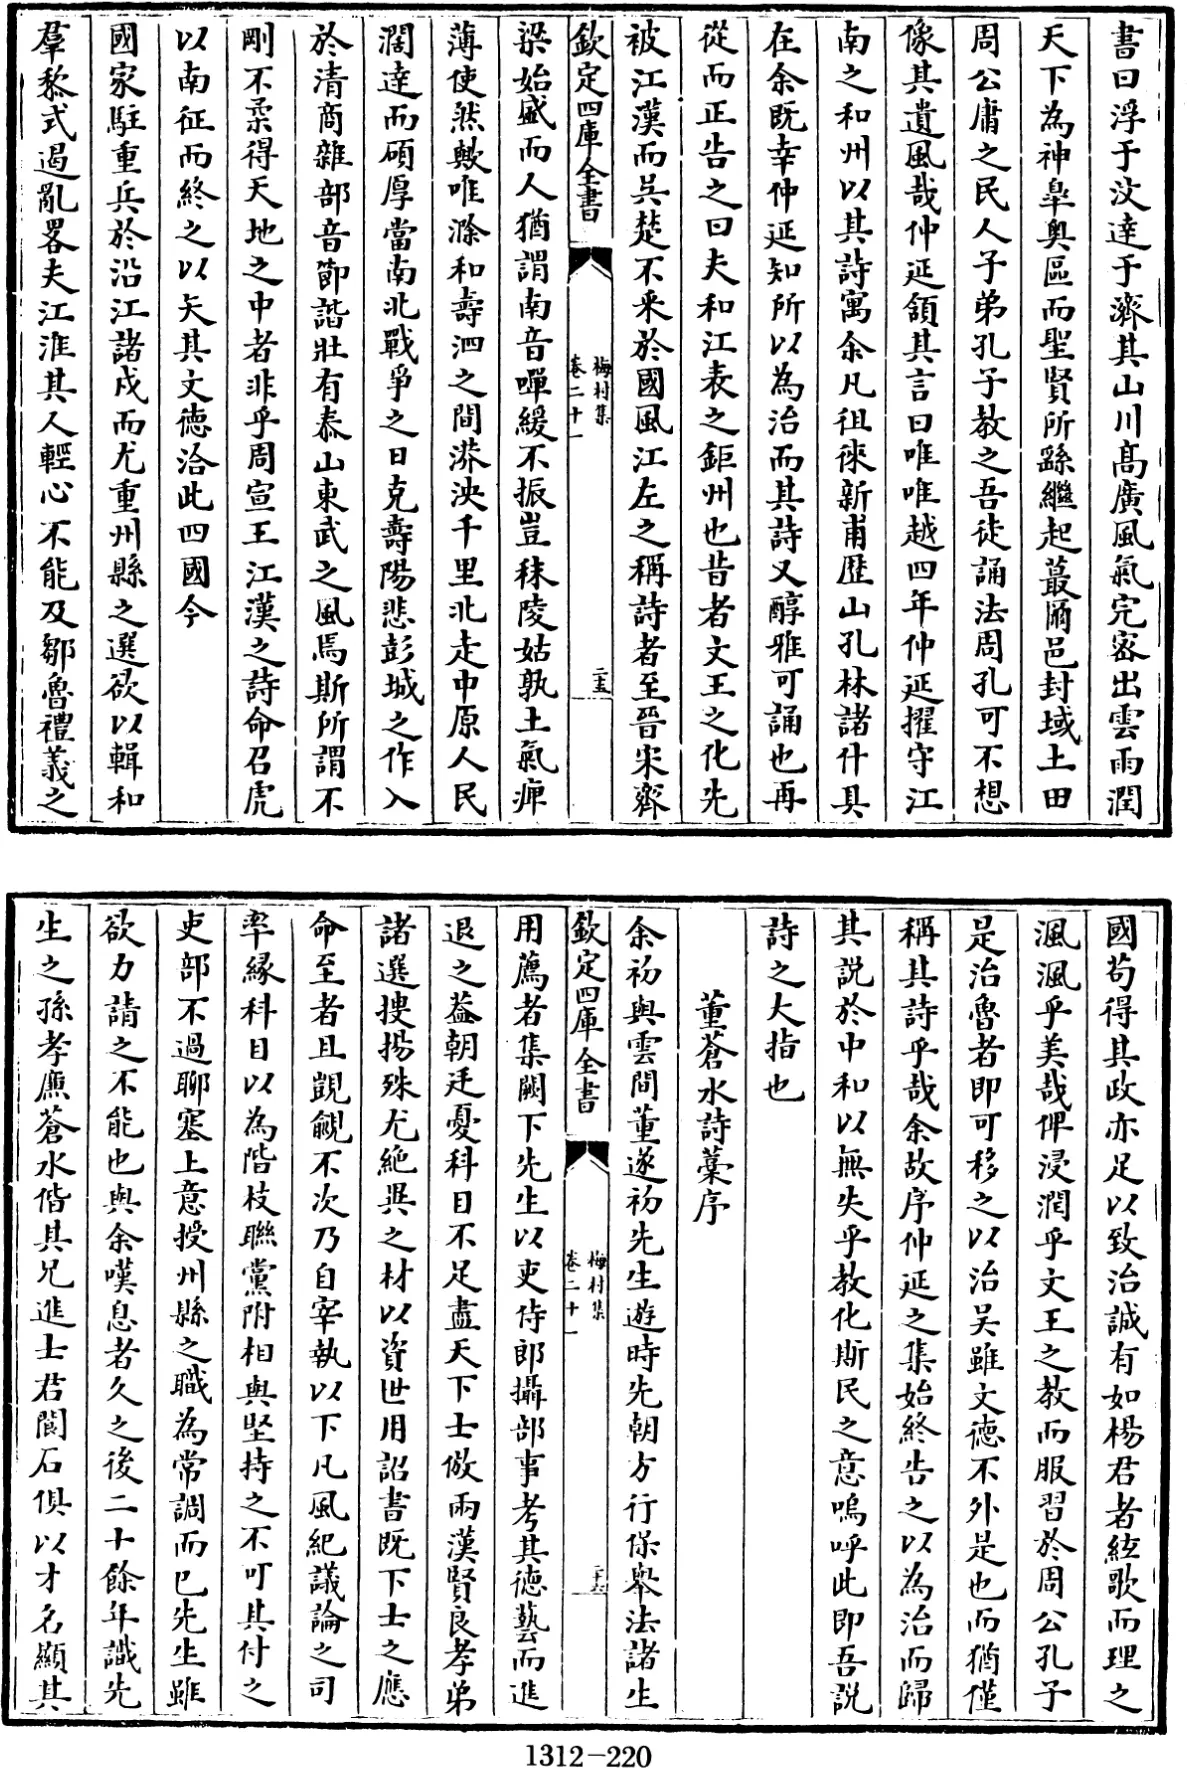 書曰浮于汶達于濟其山川髙廣風氣完宻出雲雨潤
天下為神臯奥區而聖賢所繇繼起蕞爾邑封域土田
周公庸之民人子弟孔子教之吾徒誦法周孔可不想
像其遺風哉仲延頷其言曰唯唯越四年仲延擢守江
南之和州以其詩寓余凡徂徠新甫歴山孔林諸什具
在余既幸仲延知所以為治而其詩又醇雅可誦也再
從而正告之曰夫和江表之鉅州也昔者文王之化先
被江漢而呉楚不采於國風江左之稱詩者至晉宋齊
欽定四庫全書
梅村集
卷二十一
二十五
梁始盛而人猶謂南音嘽緩不振豈秣陵姑孰土氣痺
薄使然歟唯滁和壽泗之間漭泱千里北走中原人民
濶達而碩厚當南北戰爭之日克壽陽悲彭城之作入
於清商雜部音節諧壯有泰山東武之風焉斯所謂不
剛不柔得天地之中者非乎周宣王江漢之詩命召虎
以南征而終之以矢其文德洽此四國今
國家駐重兵於沿江諸戍而尤重州縣之選欲以輯和
羣黎式遏亂畧夫江淮其人輕心不能及鄒魯禮義之
國苟得其政亦足以致治誠有如楊君者絃歌而理之
渢渢乎美哉俾浸潤乎文王之教而服習於周公孔子
是治魯者即可移之以治吴雖文德不外是也而猶僅
稱其詩乎哉余故序仲延之集始終告之以為治而歸
其説於中和以無失乎教化斯民之意嗚呼此即吾説
詩之大指也
董蒼水詩藁序
余初與雲間董遂初先生遊時先朝方行保舉法諸生
欽定四庫全書
梅村集
卷二十一
二十六
用薦者集闕下先生以吏侍郎攝部事考其德藝而進
退之葢朝廷憂科目不足盡天下士倣兩漢賢良孝弟
諸選搜揚殊尤絶異之材以資世用詔書既下士之應
命至者且覬覦不次乃自宰執以下凡風紀議論之司
率縁科目以為階枝聯黨附相與堅持之不可其付之
吏部不過聊塞上意授州縣之職為常調而已先生雖
欲力請之不能也與余嘆息者久之後二十餘年識先
生之孫孝廉蒼水偕其兄進士君閬石俱以才名顯其
1312-220